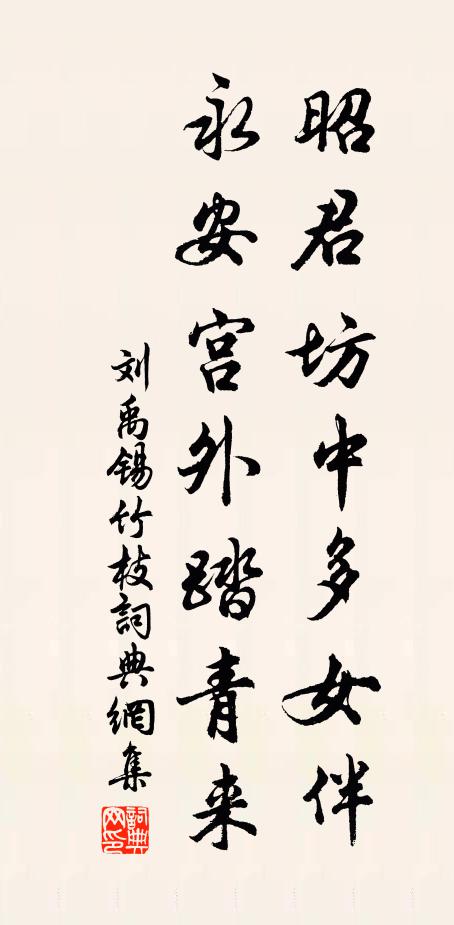 昭君坊中多女伴
永安宫外踏青来
刘禹锡竹枝詞典網集
詞典网印